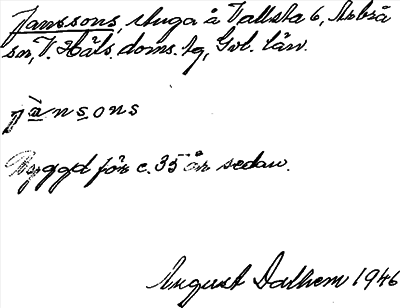 Janssons, stuga å Vallsta 6, Arbrå
sn, V. Häls. doms. tg, Gvl. län.
jànsons
Byggd för c. 35 år sedan.
August Dalhem 1946